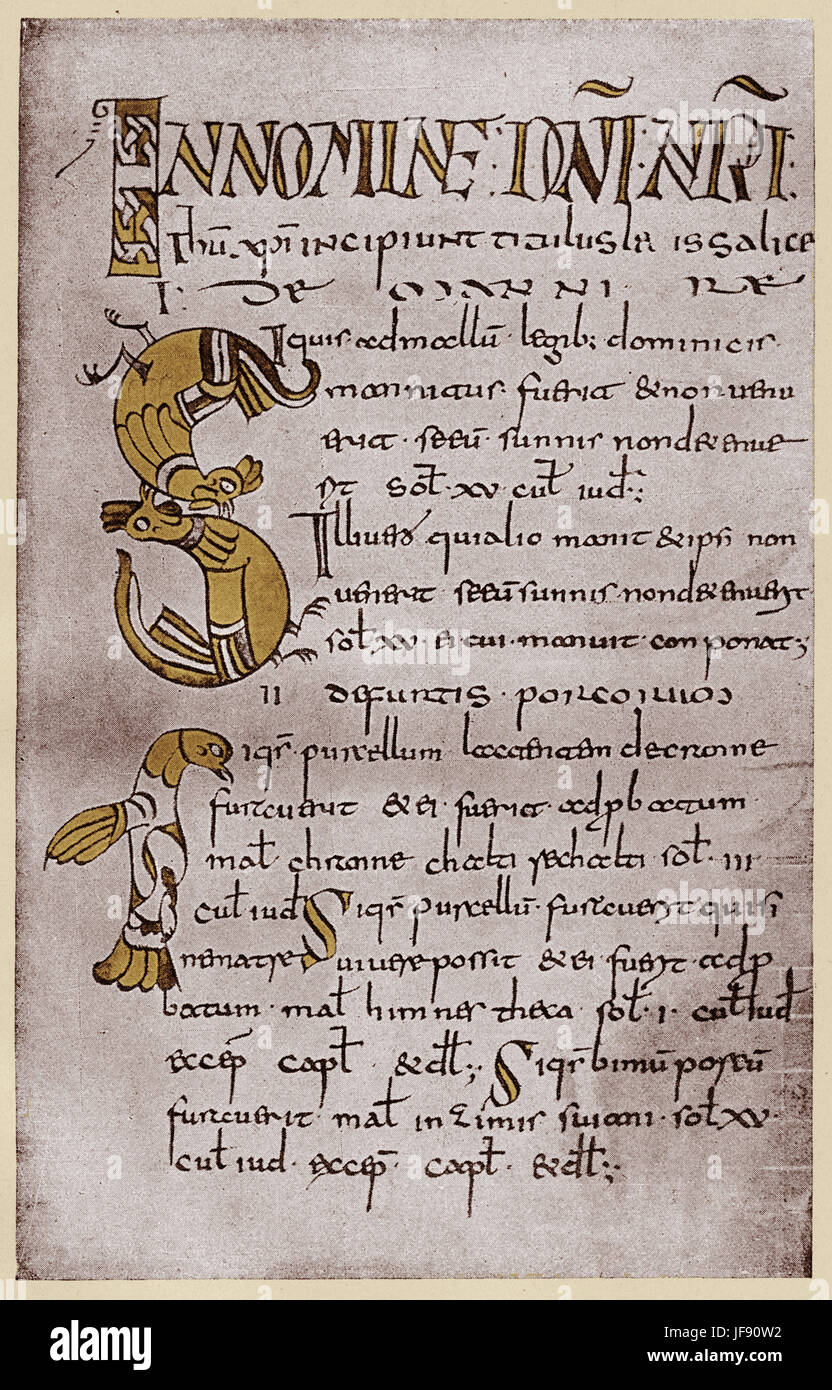 IN NOMINE · DNI · NRI :
ihu xpi incipiunt titulus le is salice
I · DE MANNIRE
Siquis ad mallu legib; dominicis
mannitus fuerit & non venu
erit · seu sunnis non detenue
rit sol · xv cul iud ·;
Ille vero qui alio manit & ips non
venerit seu sunnis non detenuerit
sol xv ei cui manuit conponat ·;
II de furtis · porcorum
Siqs purcellum lactantem de crane
furaverit & ei fuerit adpbatum
mal chranne chalti rechalti sol · III
cul iud Siqs purcellu furaverit qui si
ne matre vivere possit & ei fuerit adp
batum · mal himnes theca sol · I · cul iud
excep capl · & dil ·; Siqs bimu porcu
furaverit · mal in zimis suiani · sol xv ·
cul iud · excep capl · & dil ·;
alamy stock photo
JF90W2
www.alamy.com